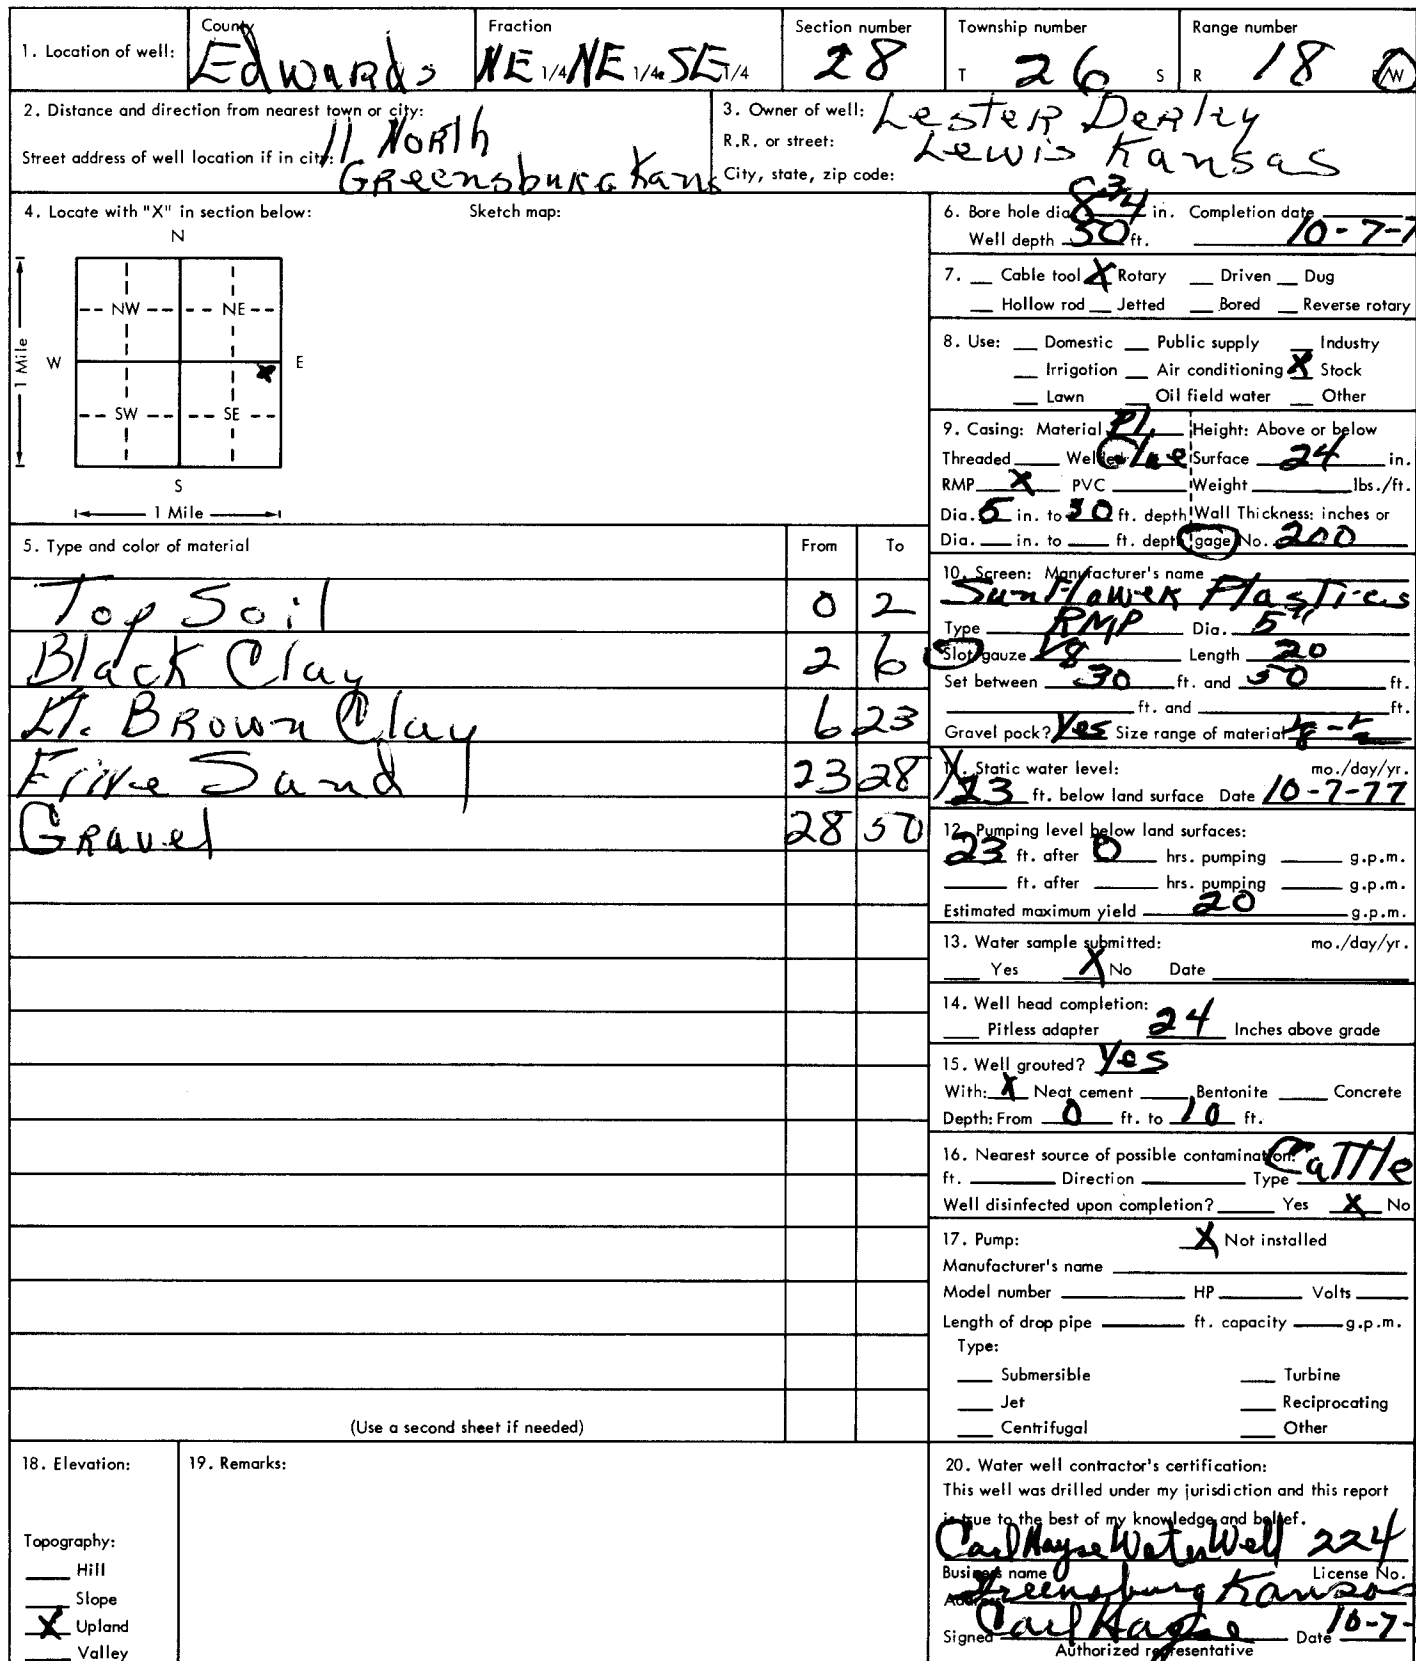 1. Location of well: County Edwards Fraction NE 1/4 NE 1/4 SE 1/4 Section number 28 Township number T 26 S Range number R 18 E/W
2. Distance and direction from nearest town or city: 11 North
Street address of well location if in city: Greensburg Kans
3. Owner of well: Lester Derley
R.R. or street: Lewis Kansas
City, state, zip code:
4. Locate with "X" in section below: Sketch map:
N
NW NE
W X E
SW SE
S
1 Mile
1 Mile
5. Type and color of material From To
Top Soil 0 2
Black Clay 2 6
Lt. Brown Clay 6 23
Fine Sand 23 28
Gravel 28 50
(Use a second sheet if needed)
6. Bore hole dia. in. Completion date
Well depth 50 ft. 10-7-7
7. Cable tool X Rotary Driven Dug
Hollow rod Jetted Bored Reverse rotary
8. Use: Domestic Public supply Industry
Irrigation Air conditioning X Stock
Lawn Oil field water Other
9. Casing: Material Pl. Height: Above or below
Threaded Welded Glue Surface 24 in.
RMP X PVC Weight lbs./ft.
Dia. 5 in. to 30 ft. depth Wall Thickness: inches or
Dia. in. to ft. depth gage No. 200
10. Screen: Manufacturer's name
SunFlower Plastics
Type RMP Dia. 5"
Slot/gauze 1/8 Length 20
Set between 30 ft. and 50 ft.
ft. and ft.
Gravel pock? Yes Size range of material
11. Static water level: mo./day/yr.
23 ft. below land surface Date 10-7-77
12. Pumping level below land surfaces:
23 ft. after 0 hrs. pumping g.p.m.
ft. after hrs. pumping g.p.m.
Estimated maximum yield 20 g.p.m.
13. Water sample submitted: mo./day/yr.
Yes X No Date
14. Well head completion:
Pitless adapter 24 Inches above grade
15. Well grouted? Yes
With: X Neat cement Bentonite Concrete
Depth: From 0 ft. to 10 ft.
16. Nearest source of possible contamination:
ft. Direction Type Cattle
Well disinfected upon completion? Yes X No
17. Pump: X Not installed
Manufacturer's name
Model number HP Volts
Length of drop pipe ft. capacity g.p.m.
Type:
Submersible Turbine
Jet Reciprocating
Centrifugal Other
18. Elevation:
Topography:
Hill
Slope
X Upland
Valley
19. Remarks:
20. Water well contractor's certification:
This well was drilled under my jurisdiction and this report
is true to the best of my knowledge and belief.
Carl Hayse Water Well 224
Business name License No.
Address Greensburg Kansas
Signed Carl Hayse Date 10-7-
Authorized representative